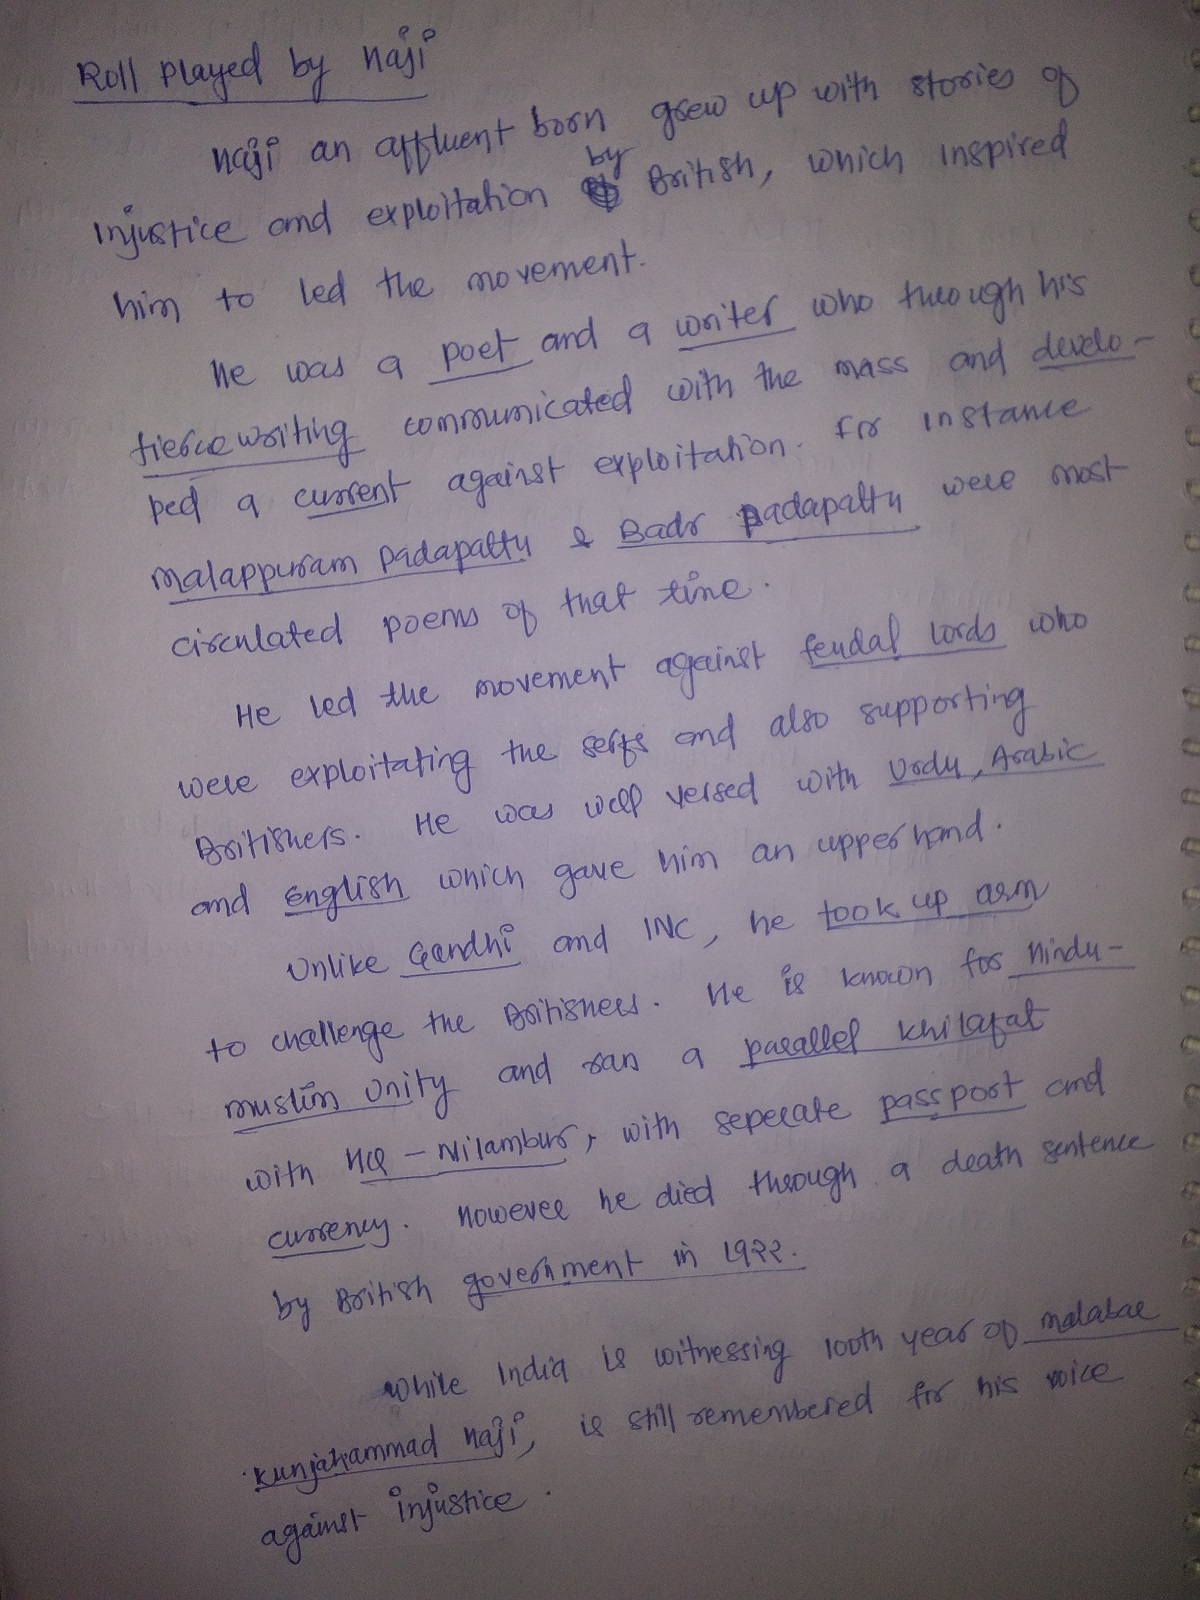 Roll played by Haji
Haji an affluent born grew up with stories of
injustice and exploitation by British, which inspired
him to led the movement.
He was a poet and a writer who through his
fierce writing communicated with the mass and develo-
ped a current against exploitation. For instance
Malappuram Padapattu & Badr Padapattu were most
circulated poems of that time.
He led the movement against feudal lords who
were exploitating the serfs and also supporting
Britishers. He was well versed with Urdu, Arabic
and English which gave him an upper hand.
Unlike Gandhi and INC, he took up arm
to challenge the Britishers. He is known for Hindu-
muslim Unity and ran a parallel khilafat
with HQ - Nilambur, with seperate passport and
currency. However he died through a death sentence
by British government in 1922.
While India is witnessing 100th year of malabar
Kunjahammad Haji, is still remembered for his voice
against injustice.